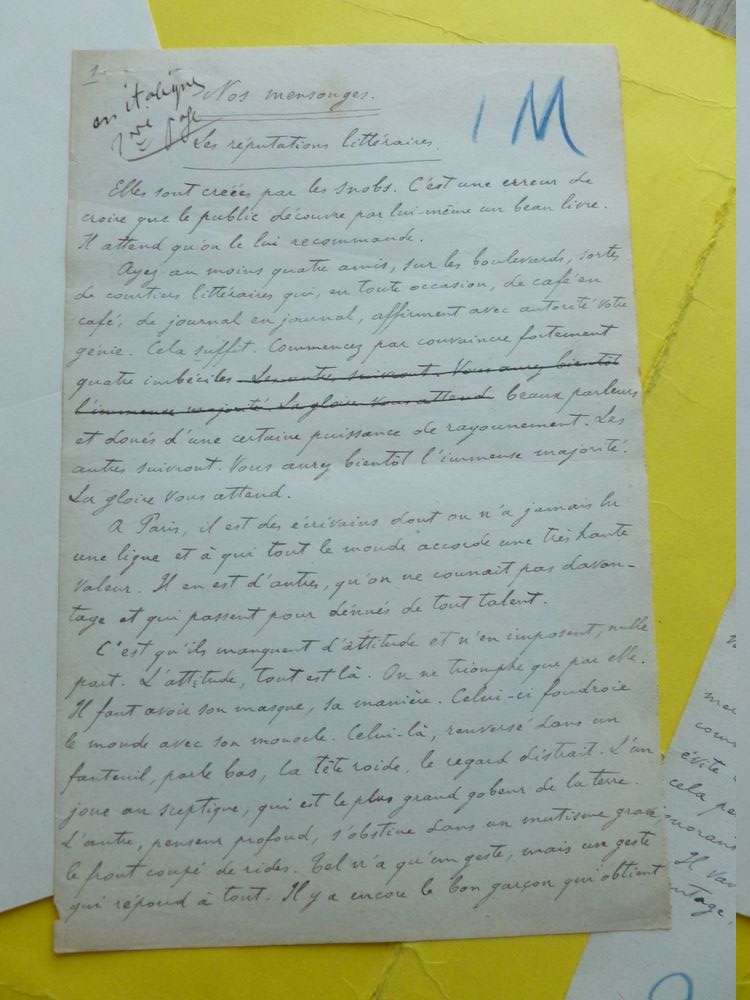 1
en italiques
1ère page
Nos mensonges.
1 M
Les réputations littéraires.
Elles sont créées par les snobs. C'est une erreur de
croire que le public découvre par lui-même un beau livre.
Il attend qu'on le lui recommande.
Ayez au moins quatre amis, sur les boulevards, sortes
de courtiers littéraires qui, en toute occasion, de café en
café, de journal en journal, affirment avec autorité votre
génie. Cela suffit. Commencez par convaincre fortement
quatre imbéciles Les autres suivront. Vous aurez bientôt
l'immense majorité. La gloire vous attend. beaux parleurs
et doués d'une certaine puissance de rayonnement. Les
autres suivront. Vous aurez bientôt l'immense majorité.
La gloire vous attend.
A Paris, il est des écrivains dont on n'a jamais lu
une ligne et à qui tout le monde accorde une très haute
valeur. Il en est d'autres, qu'on ne connait pas davan-
tage et qui passent pour dénués de tout talent.
C'est qu'ils manquent d'attitude et n'en imposent, nulle
part. L'attitude, tout est là. On ne triomphe que par elle.
Il faut avoir son masque, sa manière. Celui-ci foudroie
le monde avec son monocle. Celui-là, renversé dans un
fauteuil, parle bas, la tête roide, le regard distrait. L'un
joue au sceptique, qui est le plus grand gobeur de la terre.
L'autre, penseur profond, s'obstine dans un mutisme grave,
le front coupé de rides. Tel n'a qu'un geste, mais un geste
qui répond à tout. Il y a encore le bon garçon qui obtient
évite
cela
Il